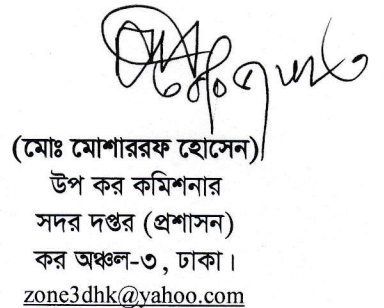 (মোঃ মোশাররফ হোসেন)
উপ কর কমিশনার
সদর দপ্তর (প্রশাসন)
কর অঞ্চল-৩ , ঢাকা।
zone3dhk@yahoo.com